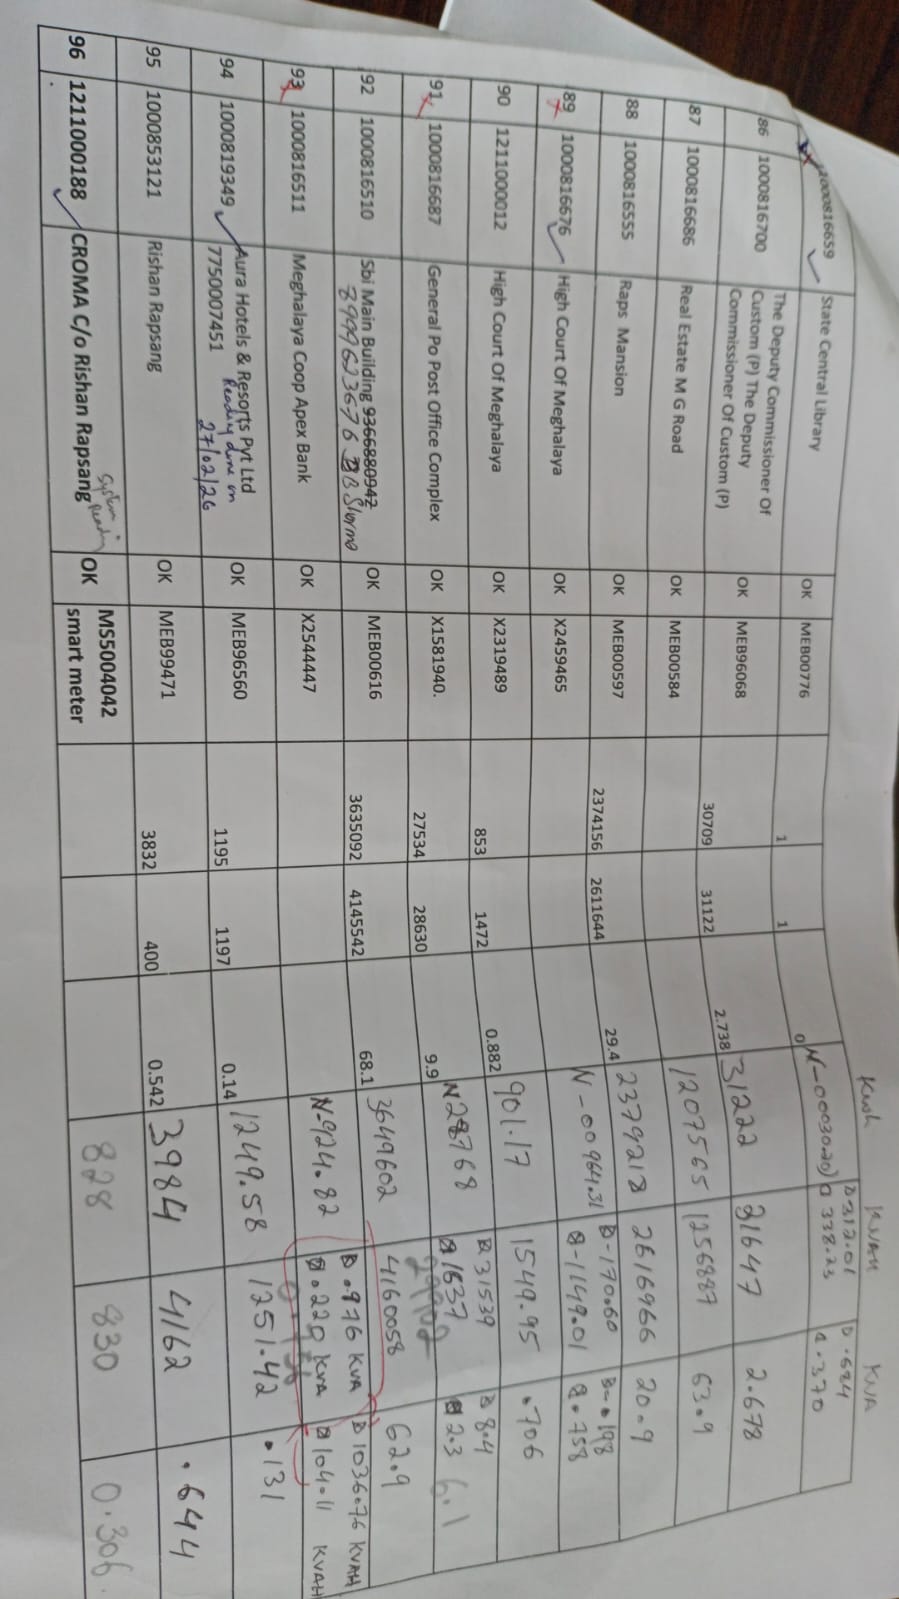 Kwh KVAH KVA
1000816659 State Central Library OK MEB00776 1 1 0 N-0003020 B 312.01 D .624
Q 338.23 Q .370
86 1000816700 The Deputy Commissioner Of
Custom (P) The Deputy
Commissioner Of Custom (P) OK MEB96068 30709 31122 2.738 31222 31647 2.678
87 1000816686 Real Estate M G Road OK MEB00584 1207565 1256887 63.9
88 1000816555 Raps Mansion OK MEB00597 2374156 2611644 29.4 2379218 2616966 20.9
89 1000816676 High Court Of Meghalaya OK X2459465 N-00964.31 B-170.60 B-.198
Q-1149.01 Q.758
90 1211000012 High Court Of Meghalaya OK X2319489 853 1472 0.882 901.17 1549.95 .706
91 1000816687 General Po Post Office Complex OK X1581940. 27534 28630 9.9 N28768 B 31539 B 8.4
1637 2.3 6.1
29902
92 1000816510 Sbi Main Building 9366880942 OK MEB00616 3635092 4145542 68.1 3649602 4160058 62.9
8999623676 B Sharma
93 1000816511 Meghalaya Coop Apex Bank OK X2544447 N.924.82 B .976 KVA B 1036.76 KVAH
.220 KVA 104.11 KVAH
94 1000819349 Aura Hotels & Resorts Pvt Ltd OK MEB96560 1195 1197 0.14 1249.58 1251.42 .131
7750007451 Reading done on
27/02/26
95 1000853121 Rishan Rapsang OK MEB99471 3832 400 0.542 3984 4162 .644
96 1211000188 CROMA C/o Rishan Rapsang System Reading OK MS5004042
smart meter 828 830 0.306